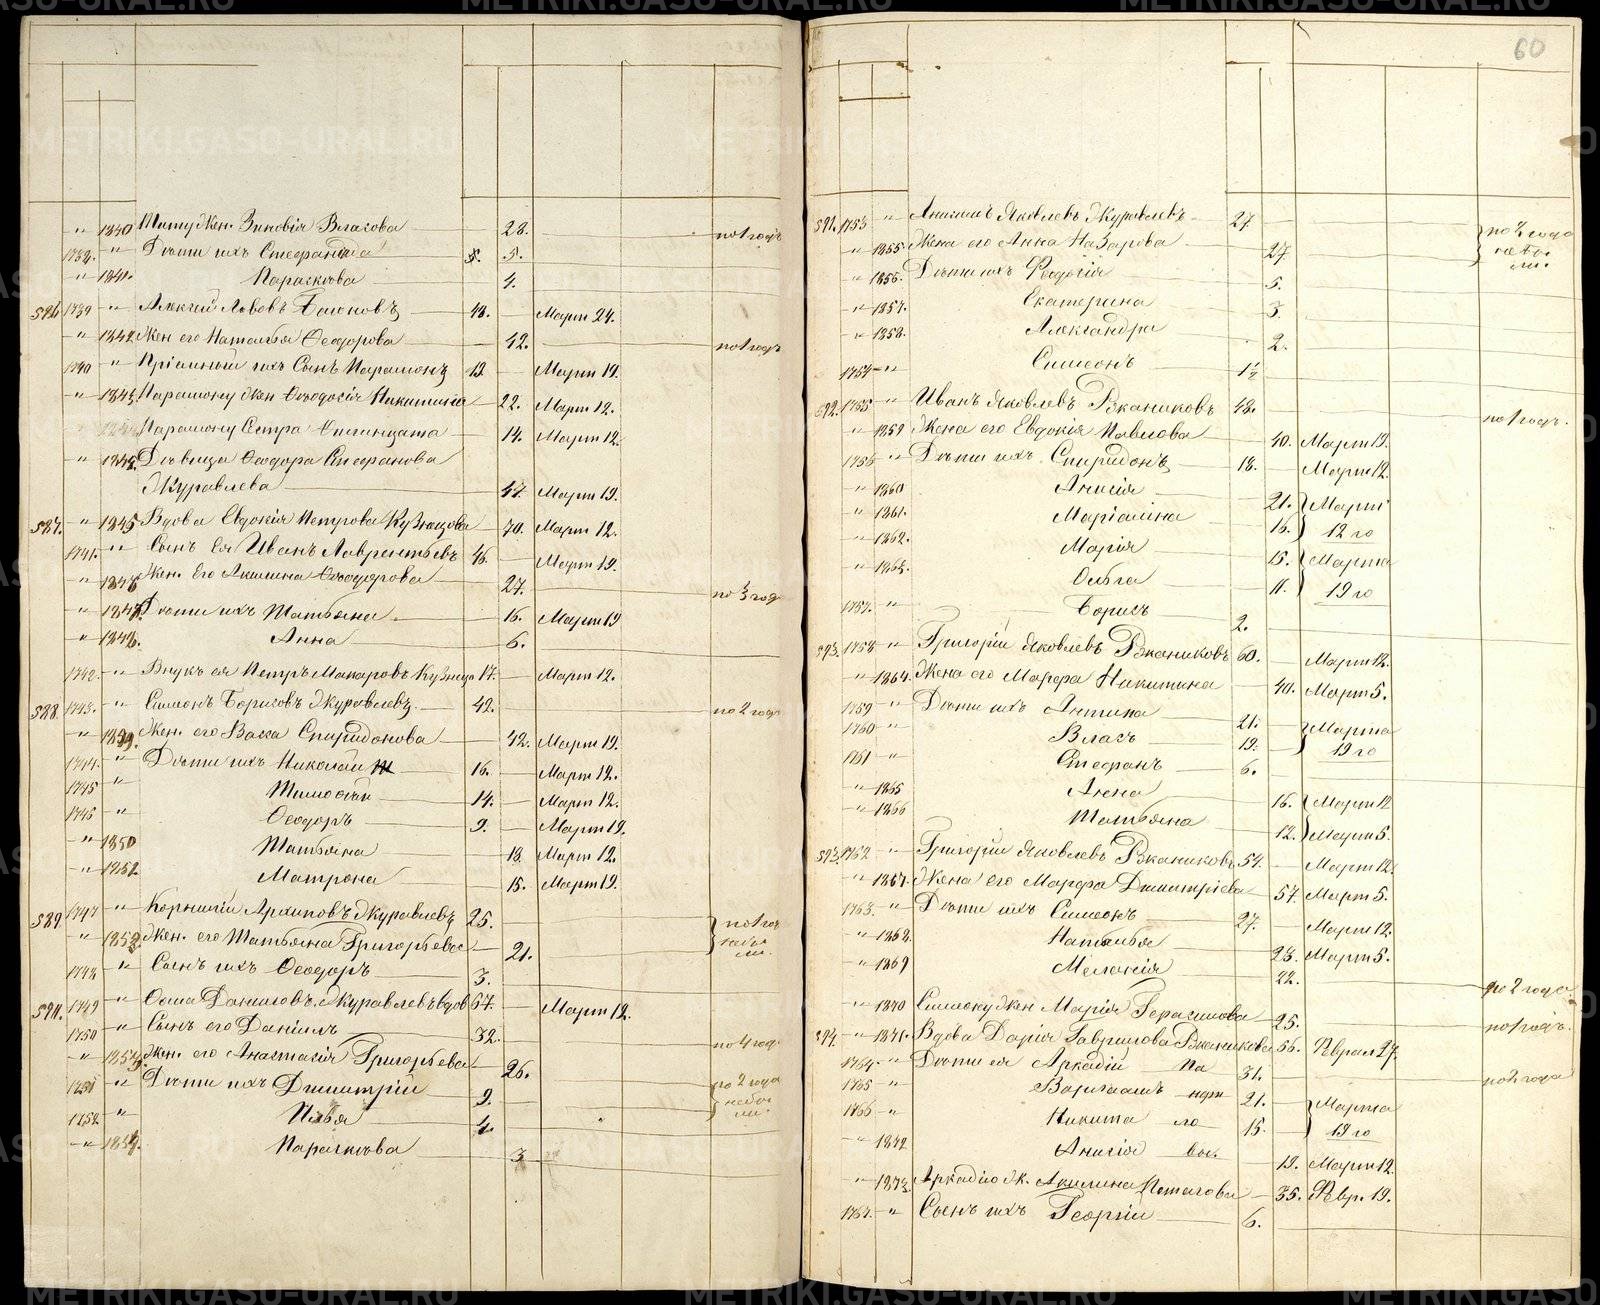 60
" 1840 Титу жен. Зиновія Власова 28. по 1 годъ
1738. " Дѣти ихъ Стефанида 5. 5.
" 1841. Параскева 4.
586 1739 " Алексѣй Львовъ 48. Март 24.
" 1842. Жен его Наталья Ѳеодорова 42. по 1 годъ
1740 " Пріемный ихъ Сынъ Парамонъ 19. Март 19.
" 1843. Парамону жен Ѳеодосія Никитина 22. Март 12.
Парамону Сестра 14. Март 12.
" 1845. Дѣвица Ѳеодора Стефанова
Журавлева 47. Март 19.
587. " 1845 Вдова Евдокія Петрова Кузнецова 70. Март 12.
1741. " Сынъ Ея Иванъ Лаврентьевъ 46. Март 19.
" 1846 Жен. Его Акилина Ѳеодорова 27. по 3 год
" 1847. Дѣти ихъ Татьяна 16. Март 19
" 1848. Анна 6.
1742. " Внукъ ея Петръ Макаровъ Кузнецо 17. Март 12.
588. 1743. " Симеонъ Борисовъ Журавлевъ 42. по 2 год
" 1849. Жен. его Васса Спиридонова 42. Март 19.
1744. " Дѣти ихъ Николай 16. Март 12.
1745 " Тимофей 14. Март 12.
1745 " Ѳеодоръ 9. Март 19.
" 1850 Татьяна 18. Март 12.
" 1852 Матрона 15. Март 19.
589. 1747 " Корнилій Архиповъ Журавлевъ 25. по 1 год
" 1853. Жен. его Татьяна Григорьева 21. небы
ли.
1748 " Сынъ ихъ Ѳеодоръ 3.
590. 1749 " Ѳома Даниловъ Журавлевъ вдов 67. Март 12.
1750 " Сынъ его Даніилъ 32. по 4 год
" 1854. Жен. его Анастасія Григорьева 26.
1751 " Дѣти ихъ Димитрій 9. по 2 года
небы
1752. " Илья 4. ли.
" 1854. Параскева 3
591. 1753 " Яковлевъ Журавлевъ 27. по 2 года
" 1855. Жена его Анна Назарова 27 небы
ли.
" 1856. Дѣти ихъ Ѳеодосія 5.
" 1857. Екатерина 3.
" 1858. Александра 2.
1754 " Симеонъ 1½
592. 1755 " Иванъ Яковлевъ Ржаниковъ 48. по 1 годъ.
" 1859 Жена его Евдокія Павлова 40. Март 19.
1756 " Дѣти ихъ Спиридонъ 18. Март 12.
" 1860 Анисія 21. Март
" 1861. Маріамна 16. 12 го
" 1862. Марія 15. Марта
" 1863. Ольга 11. 19 го
1757. " Борисъ 2.
593. 1758 " Григорій Яковлевъ Ржаниковъ 60. Март 12.
" 1864. Жена его Марфа Никитина 40. Март 5.
1759 " Дѣти ихъ Антипа 21. Марта
1760 " Власъ 19. 19 го
1761 " Стефанъ 6.
" 1865 Анна 16. Март 12
" 1866 Татьяна 12. Март 5.
593. 1762 " Григорій Яковлевъ Ржаниковъ 57. Март 12.
" 1867. Жена его Марфа Димитріева 57. Март 5.
1763. " Дѣти ихъ Симеонъ 27. Март 12.
" 1868. Наталья 23. Март 5.
" 1869 Меланія 22. по 2 года
" 1870 Симеону жен Марія Герасимова 25. по 1 годъ.
594. " 1871. Вдова Дарія Гаврилова Ржаникова 56. Феврал 27.
1764. " Дѣти ея Аркадій 31. по 2 года
1765 " Варлаамъ 21. Марта
1766 " Никита 15. 19 го
" 1872 Анисія 19. Март 12.
" 1873. Аркадію ж. Акилина Потапова 35. Февр. 19.
1767. " Сынъ ихъ Георгій 6.